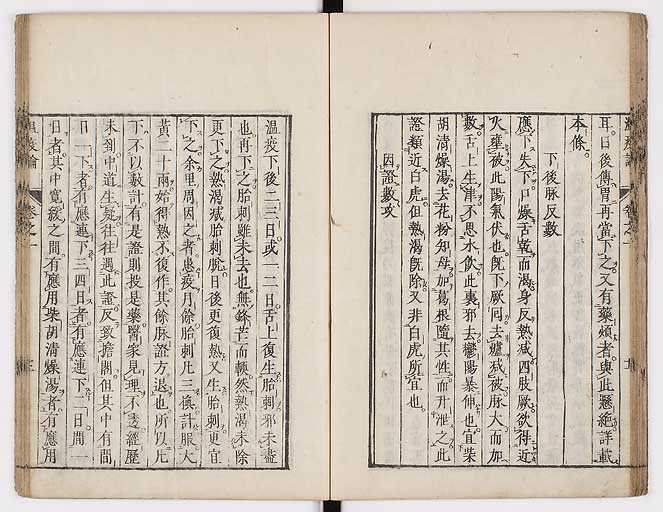 耳日後傳胃再當下之又有藥煩者與此懸絕詳載
本條
下後脉反數
應下失下口燥舌乾而渴身反熱減四肢厥欲得近
火壅被此陽氣伏也旣下厥回去爐減被脉大而加
數舌上生津不思水飲此裏邪去鬱陽暴伸也宜柴
胡清燥湯去花粉知母加葛根隨其性而升泄之此
證類近白虎但熱渴旣除又非白虎所宜也
因證數攻
溫疫下後二三日或一二日舌上復生胎刺邪未盡
也再下之胎刺雖未去也無鋒芒而軟然熱渴未除
更下之熱渴減胎刺脫日後更復熱又生胎刺更宜
下之余里周因之者患疫月餘胎刺凡三換計服大
黃二十兩始得熱不復作其餘脉證方退也所以凡
下不以數計有是證則投是藥醫家見理不透經歷
未到中道生疑往往遇此證反致擔閣但其中有間
日一下者有應連下三四日者有應連下二日間一
日者其中寬緩之間有應用柴胡清燥湯者有應用
溫疫論 卷之一